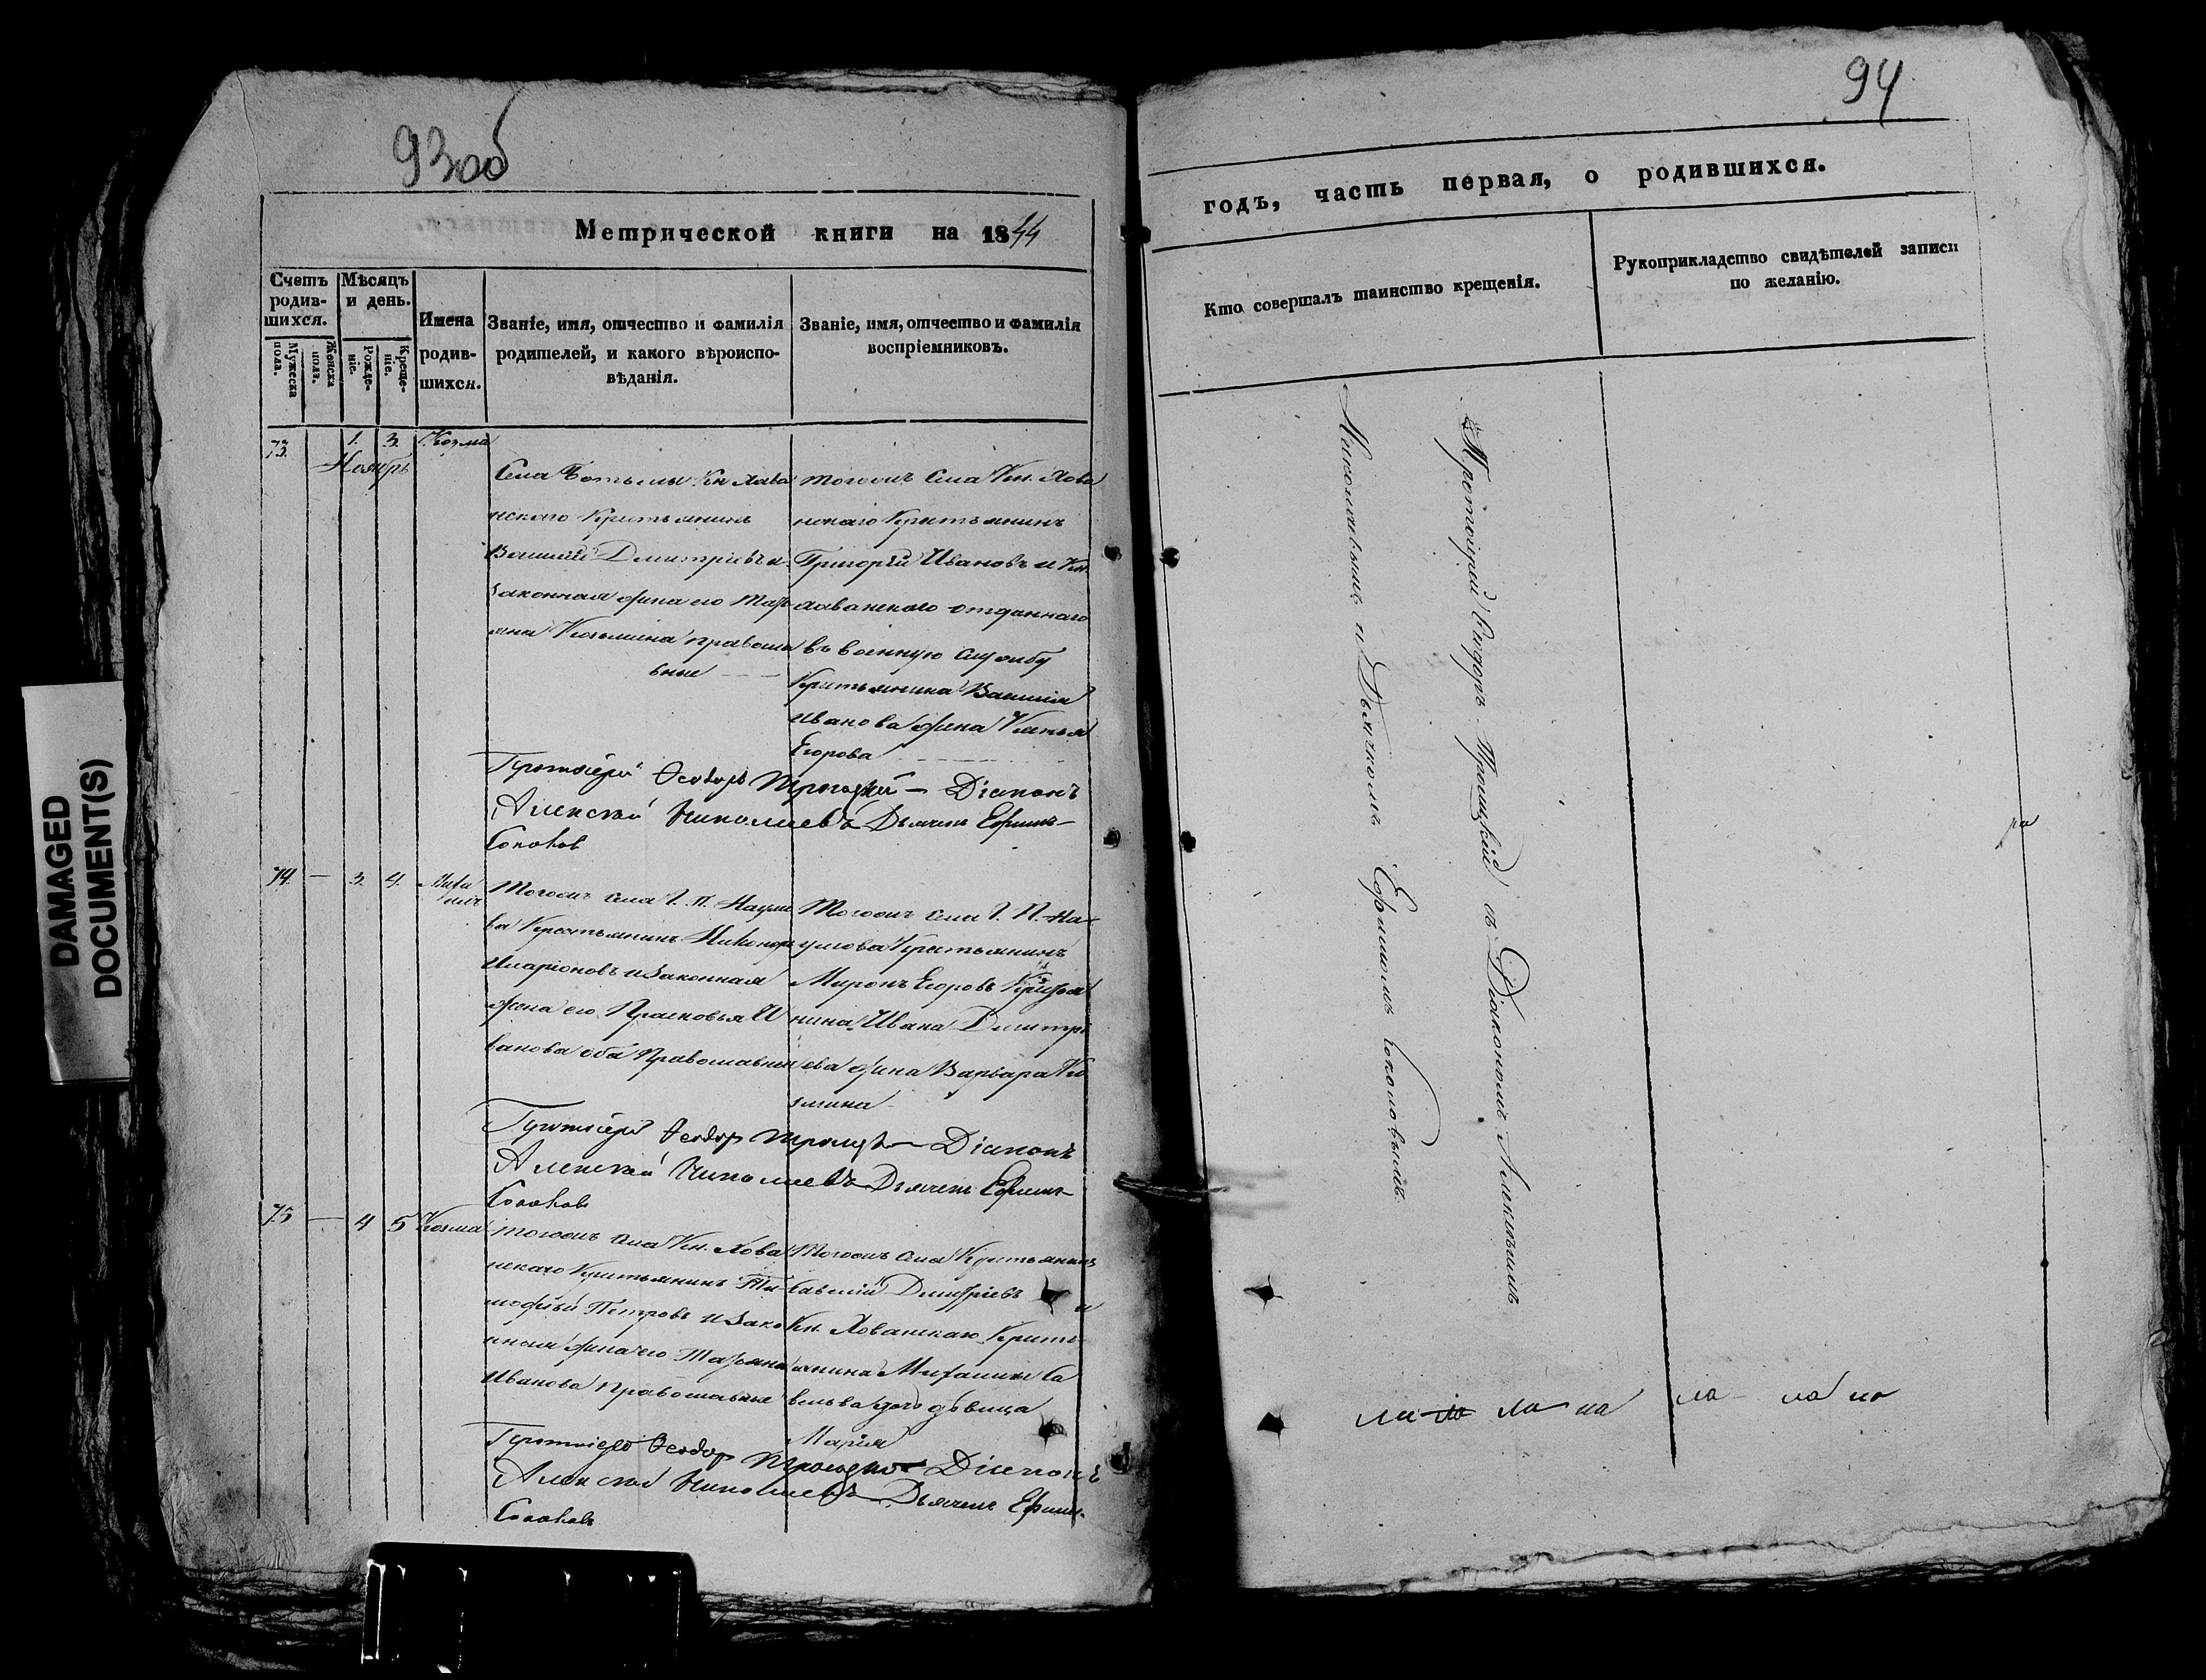 93об
Метрической книги на 1844
Счетъ родив-шихся.
Мужеска пола.
Женска пола.
Мѣсяцъ и день.
Рожде-ніе.
Креще-ніе.
Имена родив-шихся.
Званіе, имя, отчество и фамилія
родителей, и какого вѣроиспо-
вѣданія.
Званіе, имя, отчество и фамилія
воспріемниковъ.
73. 1. 3. Козма
Ноябрь
Села Кн. Хова
нскаго Крестьянинъ
Василий Дмитріевъ и
законная жена его Тать
яна Козьмина правосла
вные
тогожъ села Кн. Хова
нскаго Крестьянинъ
Григорій Ивановъ и Кн.
Хаванскаго отданнаго
въ военную службу
Крестьянина Василія
Иванова жена
Егорова
Протоіерей Ѳеодоръ Троицкій – Діаконъ
Алексѣй Николаевъ Дьячекъ Ефимъ
Соколов
74. — 3. 4.
Тогожъ села Г. П. Наумо
ва Крестьянинъ Никоноръ
Иларіоновъ и законная
жена его Прасковья И
ванова оба Православные
Тогожъ села Г. П. На-
умова Крестьянинъ
Миронъ Егоровъ Крестья
нина Ивана Дмитрі
ева жена Варвара Ко
змина
Протоіерей Ѳеодор Троицк – Діаконъ
Алексѣй Николаевъ Дьячекъ Ефимъ
Соколов
75 — 4 5 Козма
тогожъ села Кн. Хова
нскаго Крестьянинъ Ти
мофѣй Петровъ и зако
нная жена его Татьяна
Иванова Православные
Тогожъ села Крестьянинъ
Савелий Дмитріевъ и
Кн. Хованскаго Кресть
янина Михаила Са
вельева дочь дѣвица
Марія
Протоіерей Ѳеодор Троицко Діаконъ
Алексѣй Николаевъ Дьячекъ Ефимъ
Соколовъ
94
годъ, часть первая, о родившихся.
Кто совершалъ таинство крещенія.
Рукоприкладство свидѣтелей записи
по желанію.
Протоіерей Ѳеодоръ Троицкій съ Діакономъ Алексѣемъ
Николаевымъ и Дьячкомъ Ефимомъ Соколовымъ
ра
DAMAGED
DOCUMENT(S)